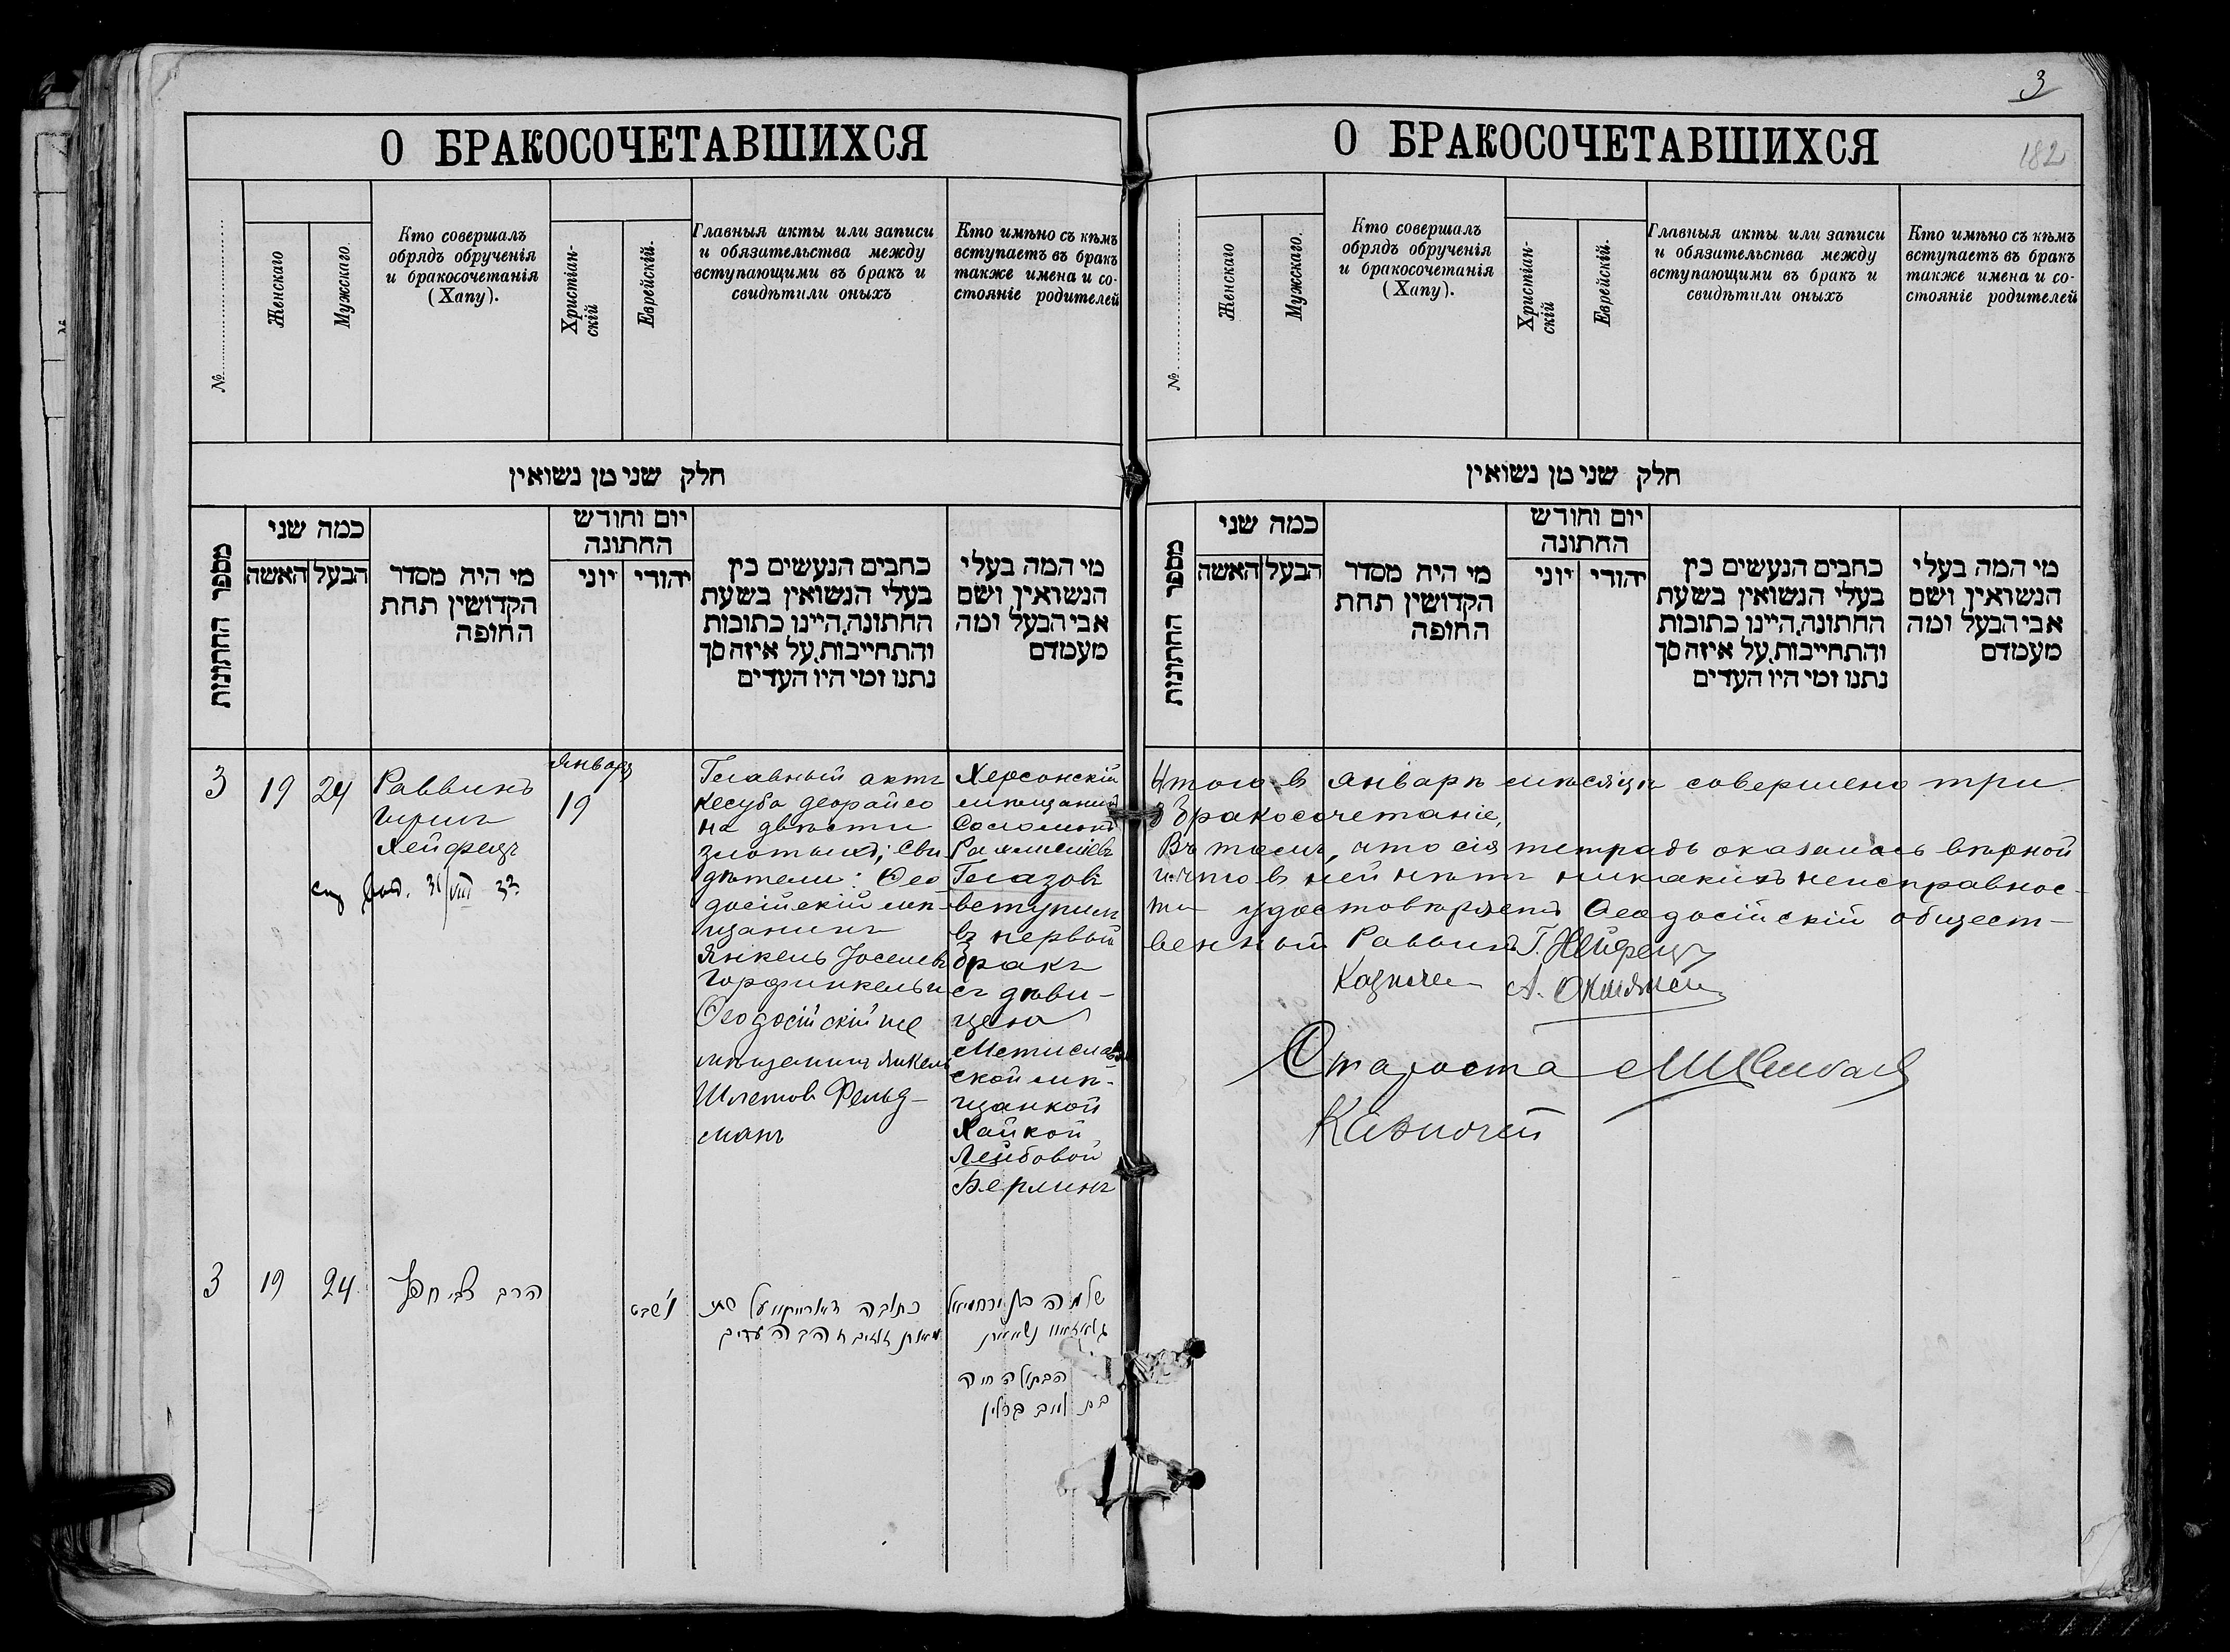 О БРАКОСОЧЕТАВШИХСЯ
№
Женскаго
Мужскаго.
Кто совершалъ
обрядъ обрученія
и бракосочетанія
(Хапу).
Христіан-
скій
Еврейскій.
Главныя акты или записи
и обязательства между
вступающими въ бракъ и
свидѣтили оныхъ
Кто имѣно съ кѣмъ
вступаетъ въ бракъ
также имена и со-
стояніе родителей
חלק שני מן נשואין
מספר החתונות
כמה שני
האשה
הבעל
מי היה מסדר
הקדושין תחת
החופה
יום וחודש
החתונה
יוני
יהודי
כתבים הנעשים בין
בעלי הנשואין בשעת
החתונה, היינו כתובות
והתחייבות, על איזה סך
נתנו ומי היו העדים
מי המה בעלי
הנשואין ושם
אבי הבעל ומה
מעמדם
3
19
24
Раввинъ
Гиршъ
Хейфецъ
31/VIII 33
января
19
Главный актъ
кесуба деорайсо
на двѣсти
злотыхъ; Сви
дѣтели: Ѳео
досійскій мѣ-
щанинъ
Янкель Іоселевъ
Горфинкель и
Ѳеодосійскій же
мѣщанинъ Янкель
Шлемовъ Фельд-
манъ
Херсонскій
мѣщанинъ
Соломонъ
Глазовъ
вступилъ
въ первый
бракъ
съ дѣви-
цею
Мстислав
ской мѣ-
щанкой
Хайкой
Лейбовой
Берлинъ
3
19
24
הרב צבי חפץ
ו' שבט
כתובה דאורייתא על שתי
מאות זהובים העדים
שלמה בן ירחמיאל
גלאזאוו נשא את
הבתולה חיה
בת ליב ברלין
3
182
О БРАКОСОЧЕТАВШИХСЯ
№
Женскаго
Мужскаго.
Кто совершалъ
обрядъ обрученія
и бракосочетанія
(Хапу).
Христіан-
скій
Еврейскій.
Главныя акты или записи
и обязательства между
вступающими въ бракъ и
свидѣтили оныхъ
Кто имѣно съ кѣмъ
вступаетъ въ бракъ
также имена и со-
стояніе родителей
חלק שני מן נשואין
מספר החתונות
כמה שני
האשה
הבעל
מי היה מסדר
הקדושין תחת
החופה
יום וחודש
החתונה
יוני
יהודי
כתבים הנעשים בין
בעלי הנשואין בשעת
החתונה, היינו כתובות
והתחייבות, על איזה סך
נתנו ומי היו העדים
מי המה בעלי
הנשואין ושם
אבי הבעל ומה
מעמדם
Итого въ январѣ мѣсяцѣ совершено три
3 бракосочетаніе,
Въ томъ, что сія тетрадь оказалась вѣрной
и что въ ней нѣтъ никакихъ неисправнос-
ти удостовѣряетъ Ѳеодосійскій общест-
венный Раввинъ Г. Хейфецъ
Казначей А.
Староста
Казначей